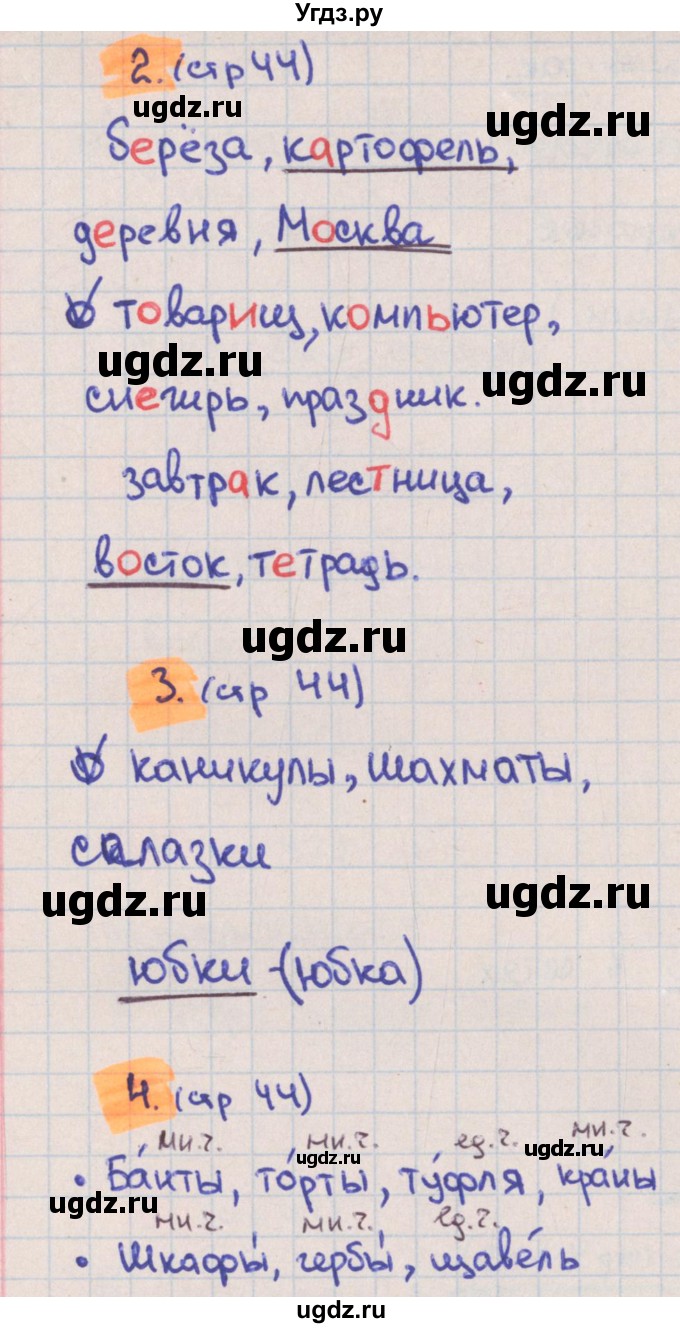 Угдз.ру
2. (стр 44)
ugdz.ru
ugdz.ru
берёза, картофель,
деревня, Москва
товарищ, компьютер,
ugdz.ru
ugdz.ru
снегирь, праздник.
завтрак, лестница,
восток, тетрадь.
ugdz.ru
3. (стр 44)
каникулы, шахматы,
салазки
ugdz.ru
ugdz.ru
юбки - (юбка)
4. (стр 44)
мн.ч. мн.ч. ед.ч. мн.ч.
ugdz.ru
ugdz.ru
• Ба́нты, то́рты, ту́фля, кра́ны
ugdz.ru
мн.ч. мн.ч. ед.ч.
• Шкафы́, гербы́, щаве́ль
ugdz.ru